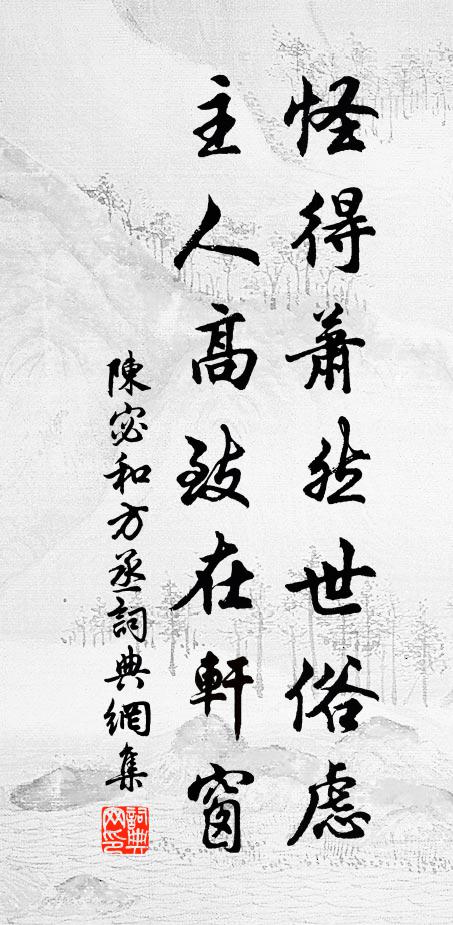 怪得蕭然世俗慮
主人高致在軒窗
陳宓和方丞詞典網集
詞典網印